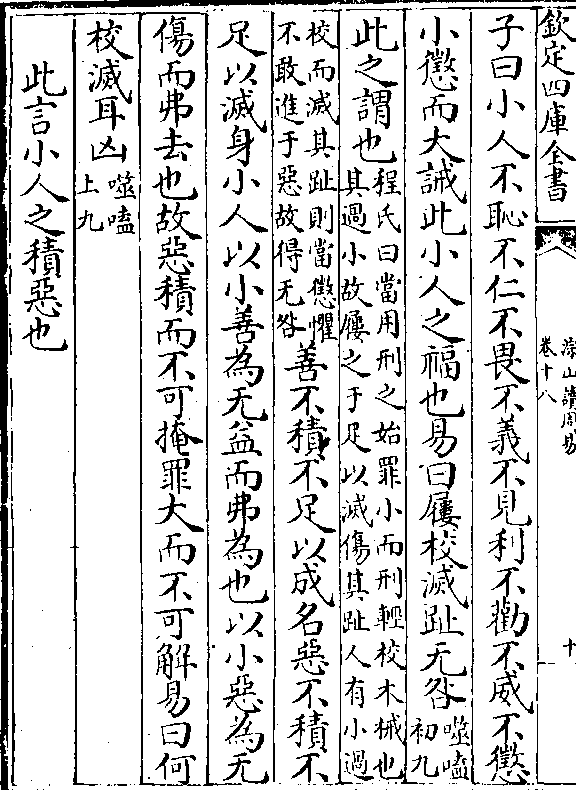 欽定四庫全書
深山讀周易
卷十八
十
子曰小人不恥不仁不畏不義不見利不勸不威不懲
小懲而大誡此小人之福也易曰屨校滅趾无咎噬嗑
初九
此之謂也程氏曰當用刑之始罪小而刑輕校木械也
其過小故屨之于足以滅傷其趾人有小過
校而滅其趾則當懲懼
不敢進于惡故得无咎善不積不足以成名惡不積不
足以滅身小人以小善為无益而弗為也以小惡為无
傷而弗去也故惡積而不可掩罪大而不可解易曰何
校滅耳凶噬嗑
上九
此言小人之積惡也